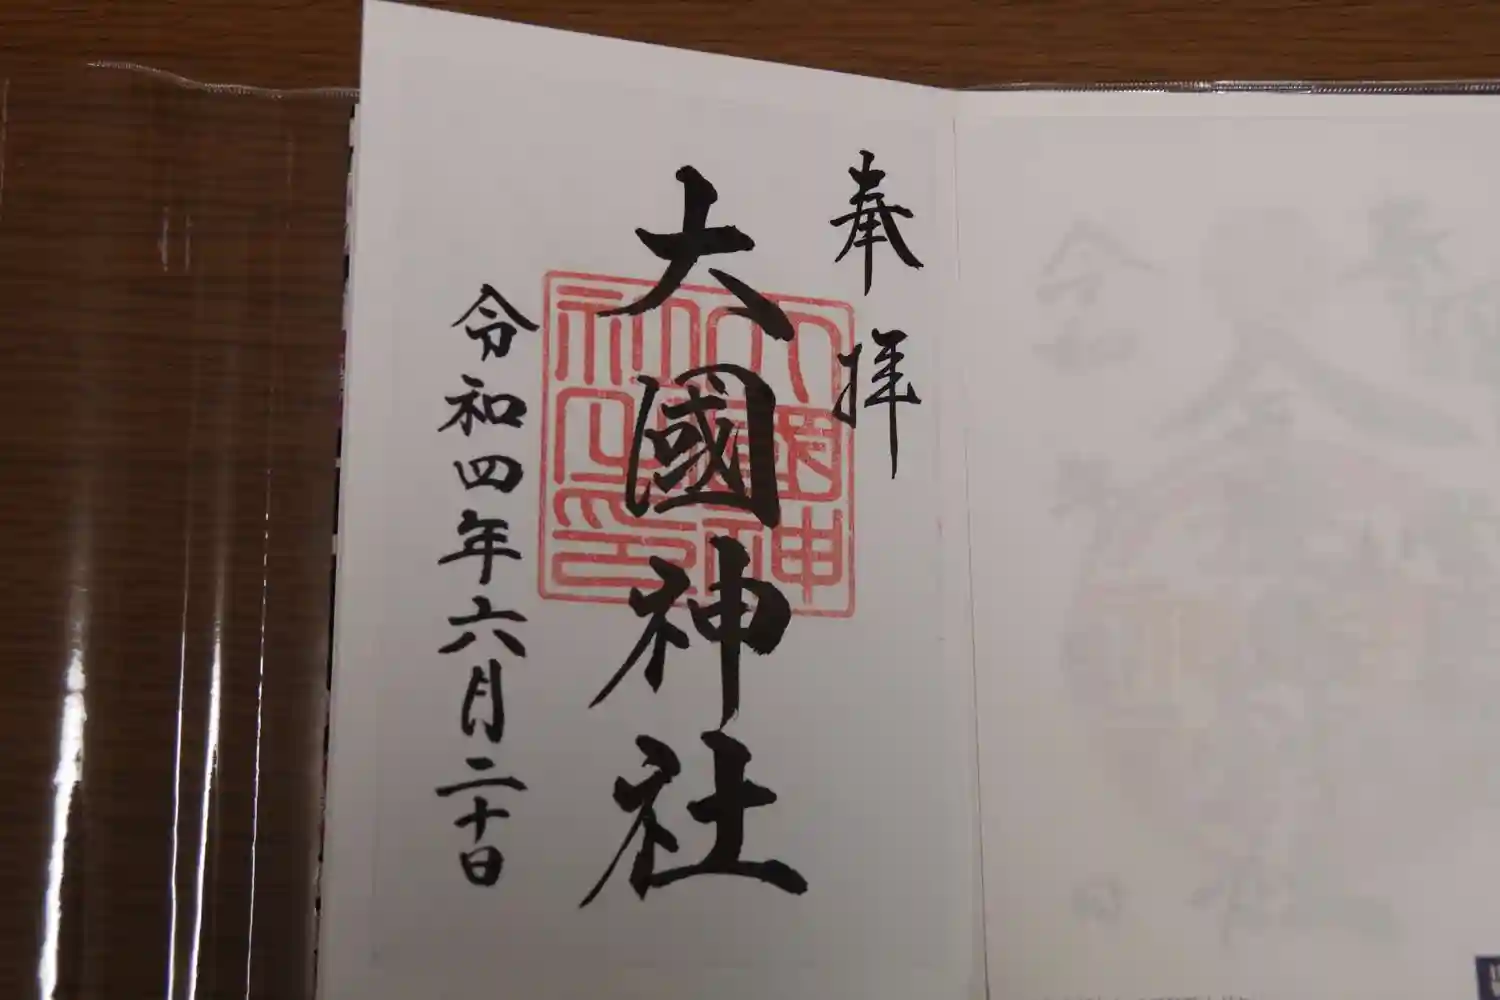 奉拝
大國神社
大國神社之印
令和四年六月二十日